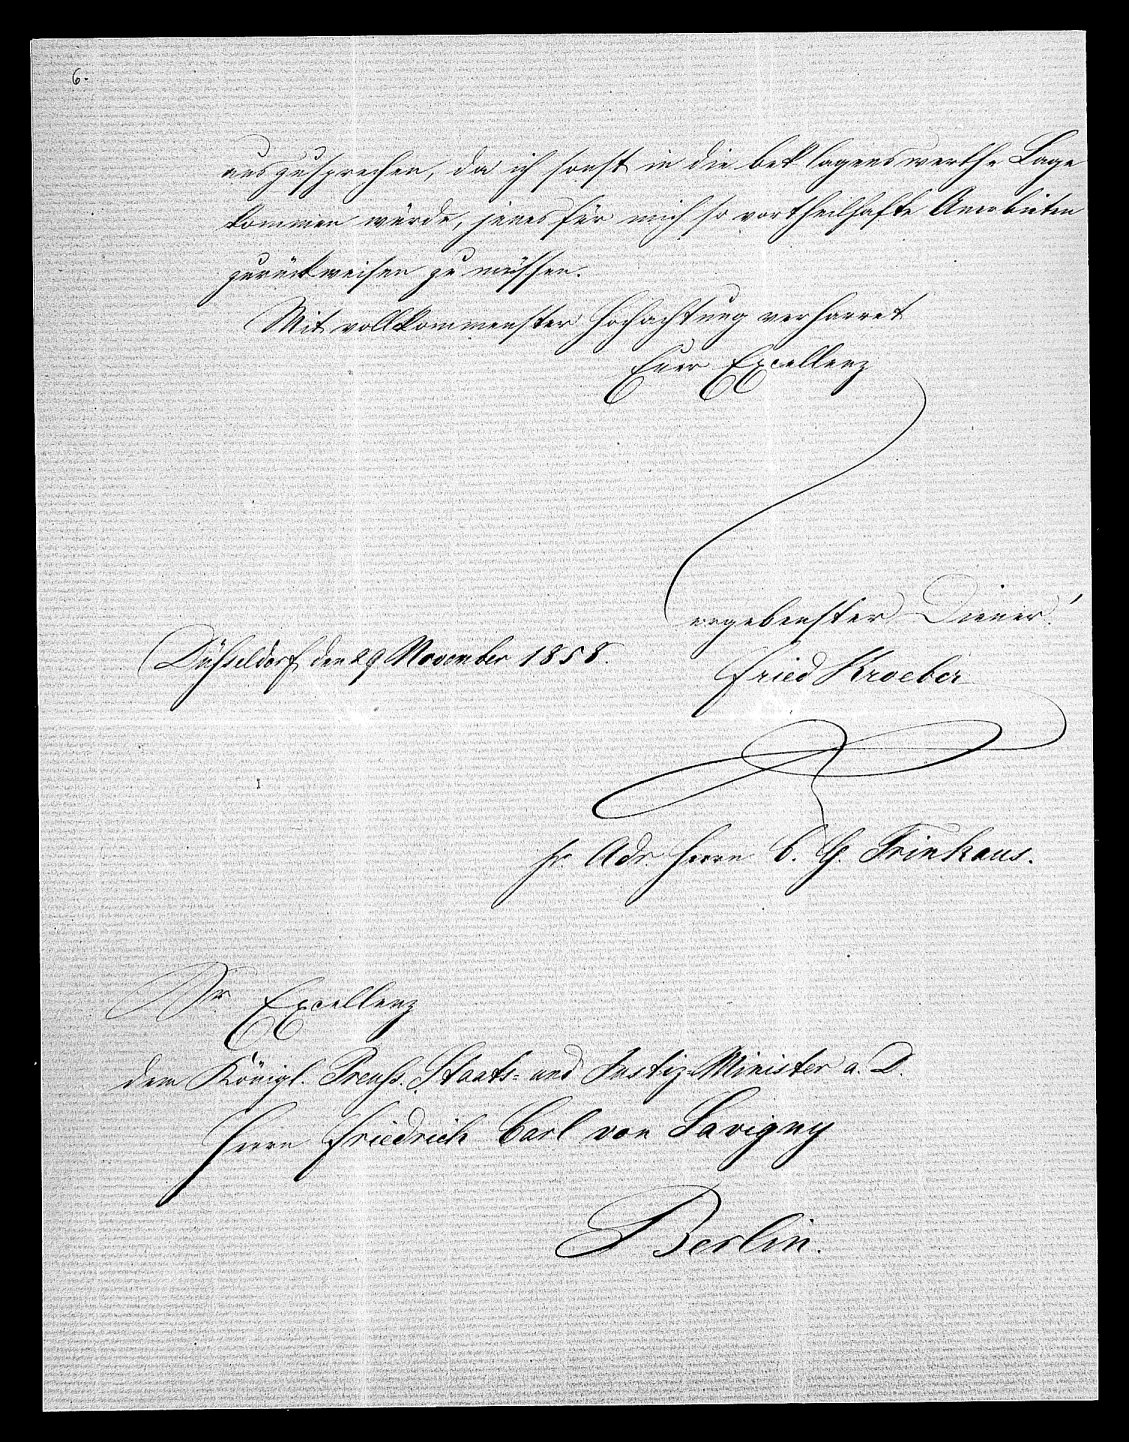 6.
auszusprechen, da ich sonst in die beklagenswerthe Lage
kommen würde, jenes für mich so vortheilhafte Anerbieten
zurückweisen zu müssen.
Mit vollkommenster Hochachtung verharret
Euer Excellenz
ergebenster Diener!
Düsseldorf, den 29 November 1858.
Fried Kroeber
pr Adr Herrn C. G. Trinkaus.
Sr Excellenz
dem Königl. Preuß. Staats- und Justiz-Minister a. D.
Herrn Friedrich Carl von Savigny
Berlin.